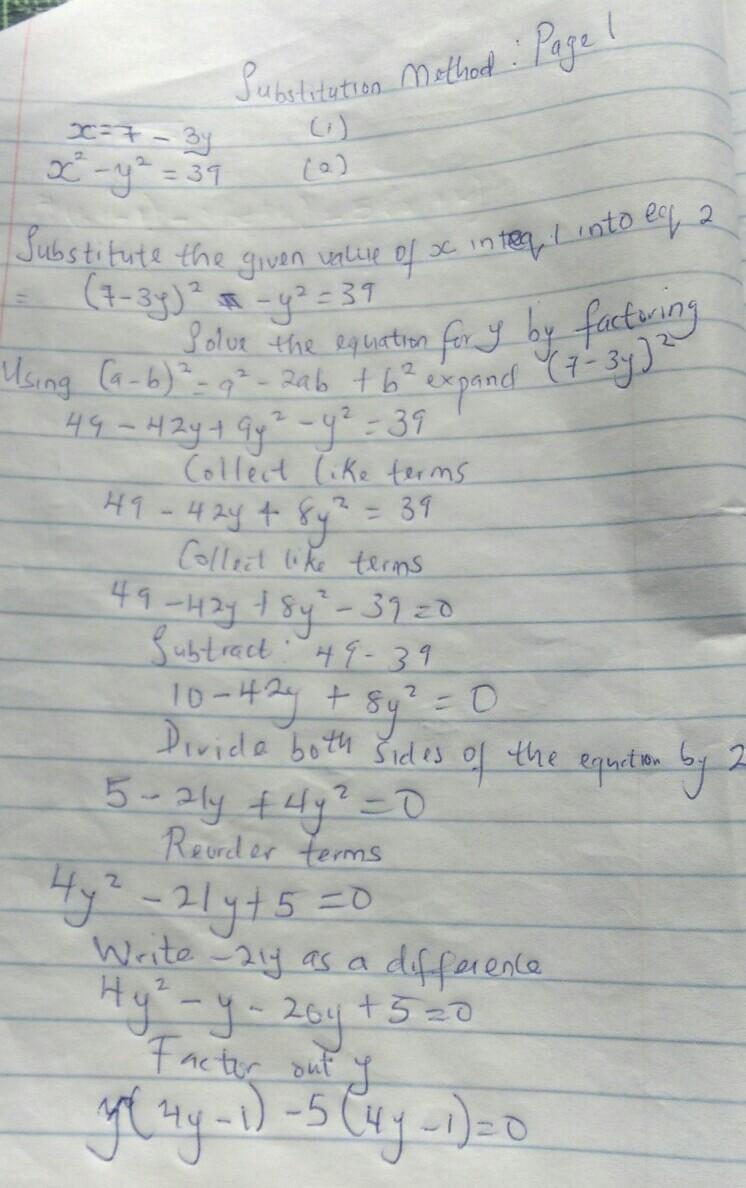 Substitution Method: Page 1
x = 7 - 3y (1)
x² - y² = 39 (2)
Substitute the given value of x in eq 1 into eq 2
= (7-3y)² - y² = 39
Solve the equation for y by factoring
Using (a-b)² = a² - 2ab + b² expand (7-3y)²
49 - 42y + 9y² - y² = 39
Collect like terms
49 - 42y + 8y² = 39
Collect like terms
49 - 42y + 8y² - 39 = 0
Subtract: 49 - 39
10 - 42y + 8y² = 0
Divide both sides of the equation by 2
5 - 21y + 4y² = 0
Reorder terms
4y² - 21y + 5 = 0
Write -21y as a difference
4y² - y - 20y + 5 = 0
Factor out y
y(4y-1) - 5(4y-1) = 0